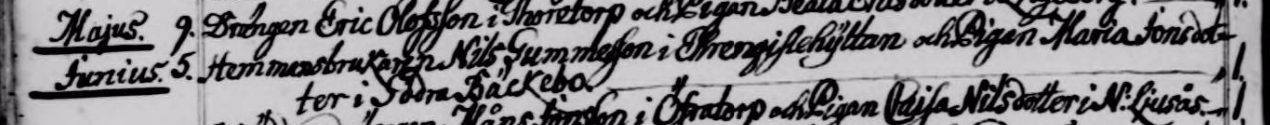 Majus. 9. Drängen Eric Olofsson i Thoretorp och Pigan
Junius. 5. Hemmansbrukaren Nils Gummesson i Threngislehyltan och Pigan Maria Jonsdot- 1.
ter i Södra Bäckebo.
Måns Jonsson i Öfratorp och Pigan Cajsa Nilsdotter i N. Ljusås. 1